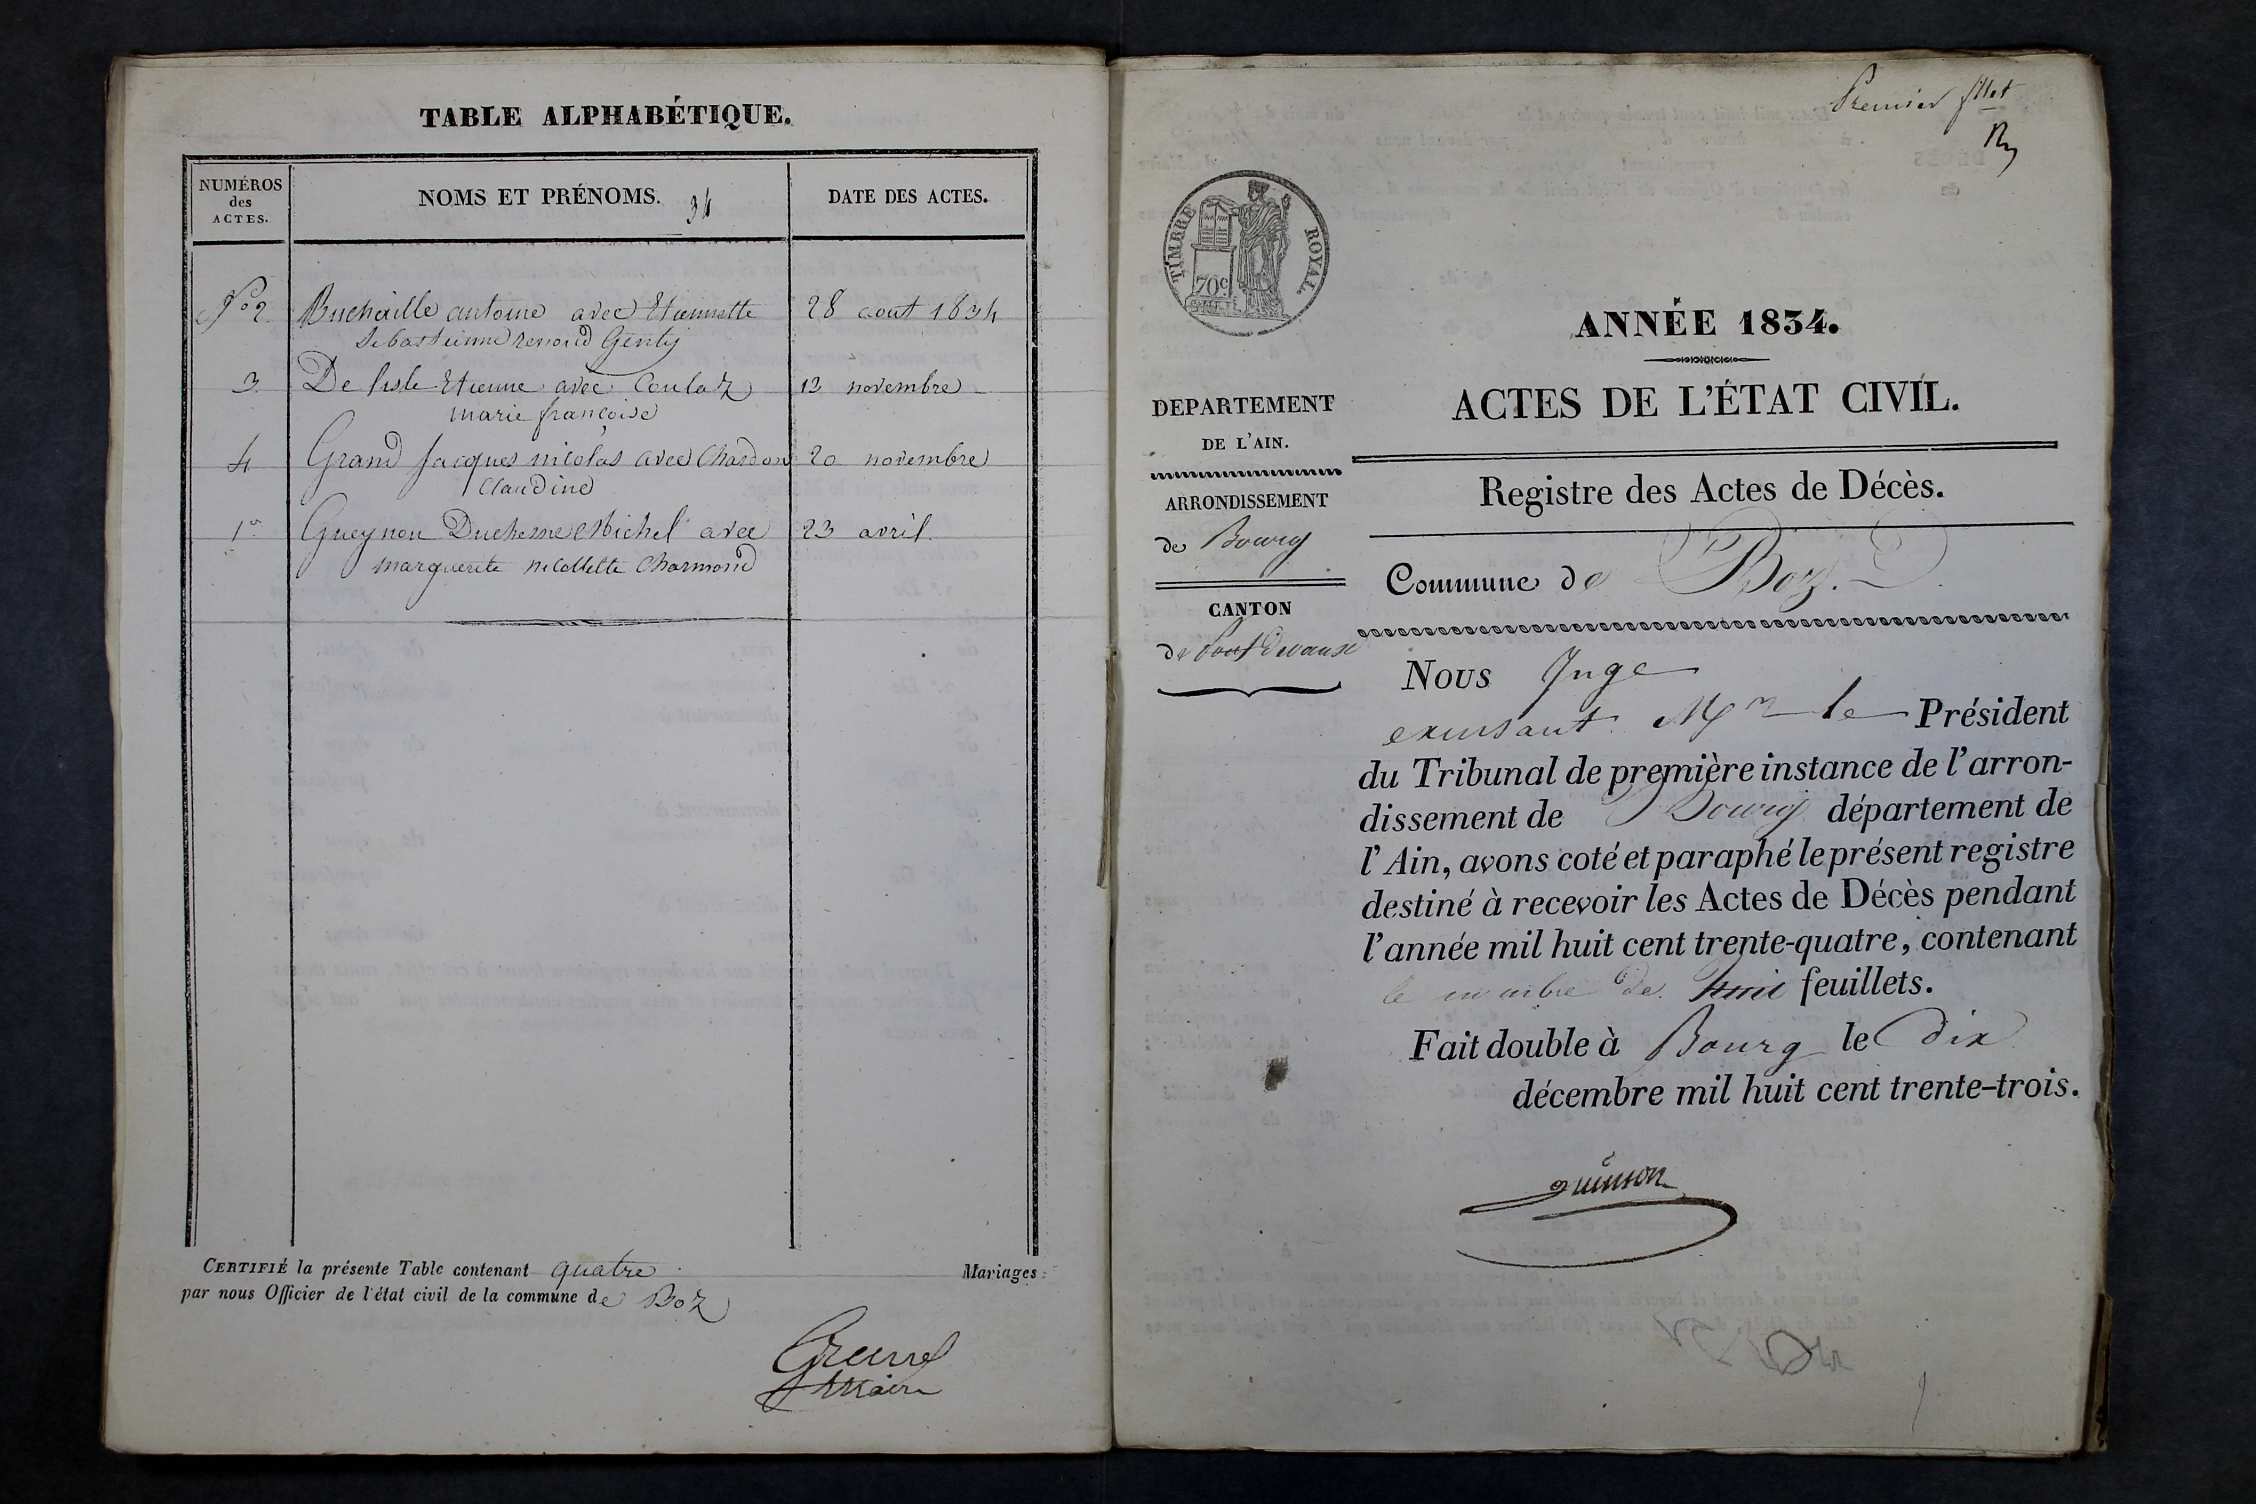 TABLE ALPHABÉTIQUE.
NUMÉROS
des
ACTES.
NOMS ET PRÉNOMS. 34
DATE DES ACTES.
N° 2 Buchaille antoine avec Etiennette 28 aout 1834
Sebastienne renoud Gentif
3 De lisle Etienne avec Coulaz 13 novembre
marie francoise
4 Grand Jacques nicolas avec Chardon 20 novembre
Claudine
1er Gueynon Duchesne Michel avec 23 avril
marguerite nicollette Charmond
CERTIFIÉ la présente Table contenant quatre Mariages
par nous Officier de l'état civil de la commune de Boz
Maire
Premier fllet
TIMBRE ROYAL.
70c
DEPARTEMENT
DE L'AIN.
ARRONDISSEMENT
de Bourg
CANTON
de Pont Devaux
ANNÉE 1834.
ACTES DE L'ÉTAT CIVIL.
Registre des Actes de Décès.
Commune de Boz.
Nous Juge
Mr le Président
du Tribunal de première instance de l'arron-
dissement de Bourg département de
l'Ain, avons coté et paraphé le présent registre
destiné à recevoir les Actes de Décès pendant
l'année mil huit cent trente-quatre, contenant
le nombre de huit feuillets.
Fait double à Bourg le dix
décembre mil huit cent trente-trois.